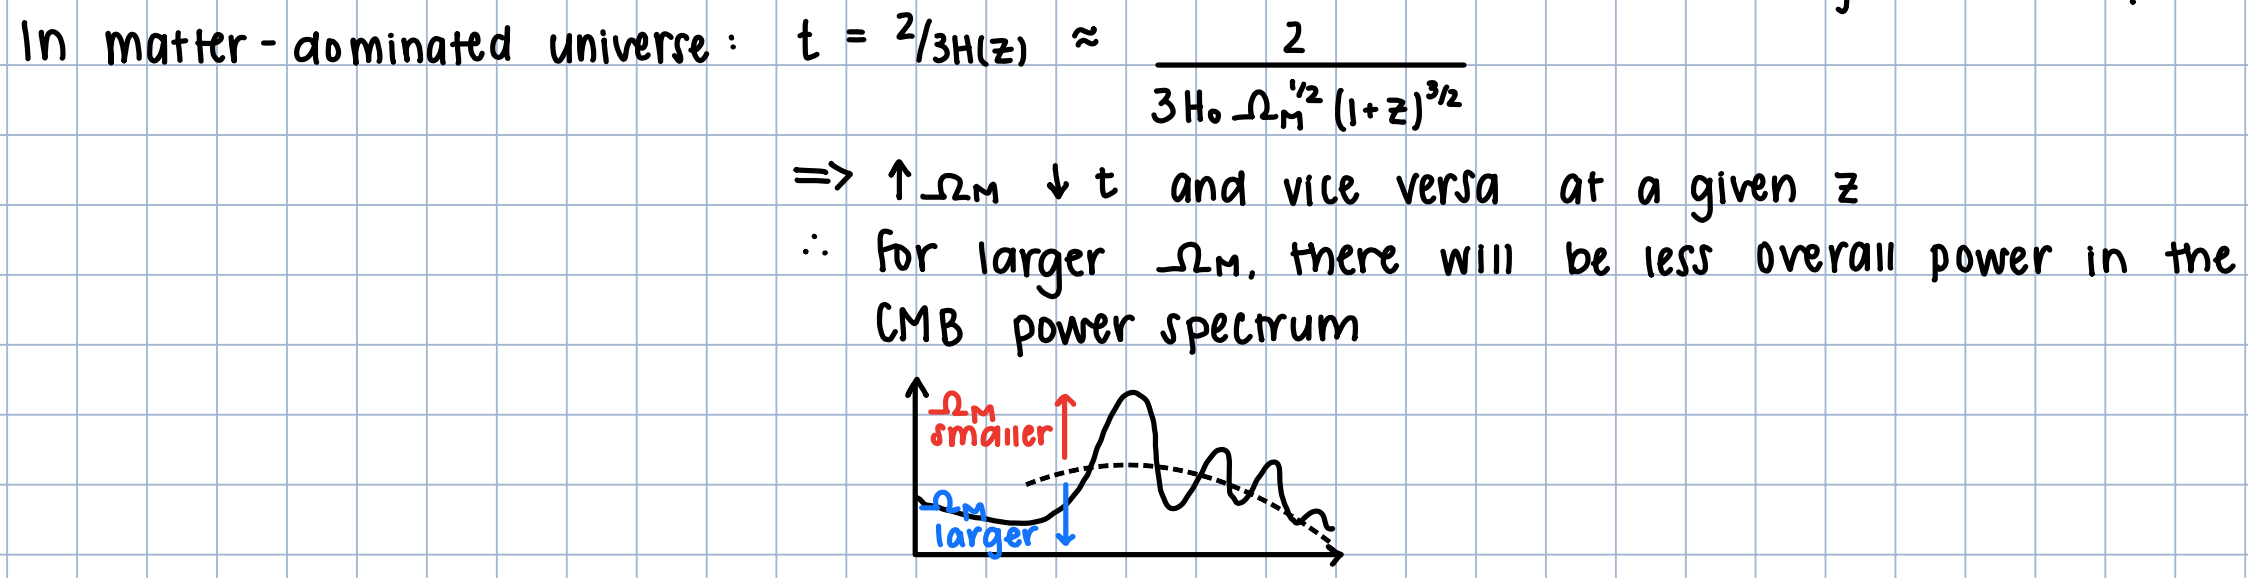 In matter-dominated universe: t = 2/3H(z) ≈ 2 / 3H₀ Ω_M^1/2 (1+z)^3/2
⇒ ↑ Ω_M ↓ t and vice versa at a given z
∴ For larger Ω_M, there will be less overall power in the
CMB power spectrum
Ω_M
smaller
Ω_M
larger